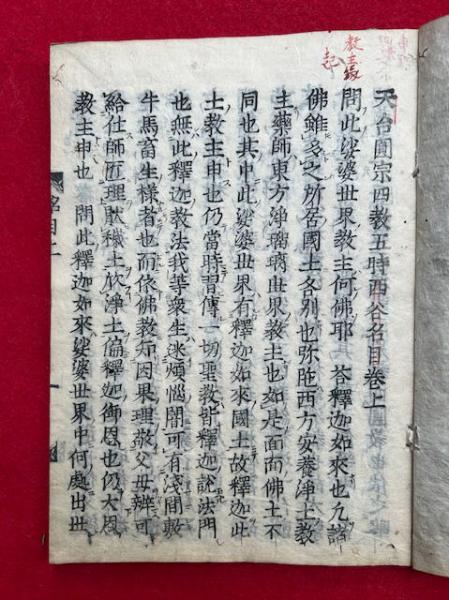 天台圓宗四教五時西谷名目卷上
問此娑婆世界教主何佛耶　答釋迦如來也九諸
佛雖多之所居國土各別也弥陀西方安養淨土教
主藥師東方淨瑠璃世界教主也如是面面佛土不
同也其中此娑婆世界有釋迦如來國土故釋迦此
土教主申也仍當時習傳一切聖教皆釋迦說法門
也無此釋迦教法我等衆生迷煩惱闇可有淺間敷
牛馬畜生樣者也而依佛教知因果理敬父母辨可
給仕師匠理猒穢土欣淨土偏釋迦御恩也仍大恩
教主申也　問此釋迦如來娑婆世界中何處出世
名目上
教主
起